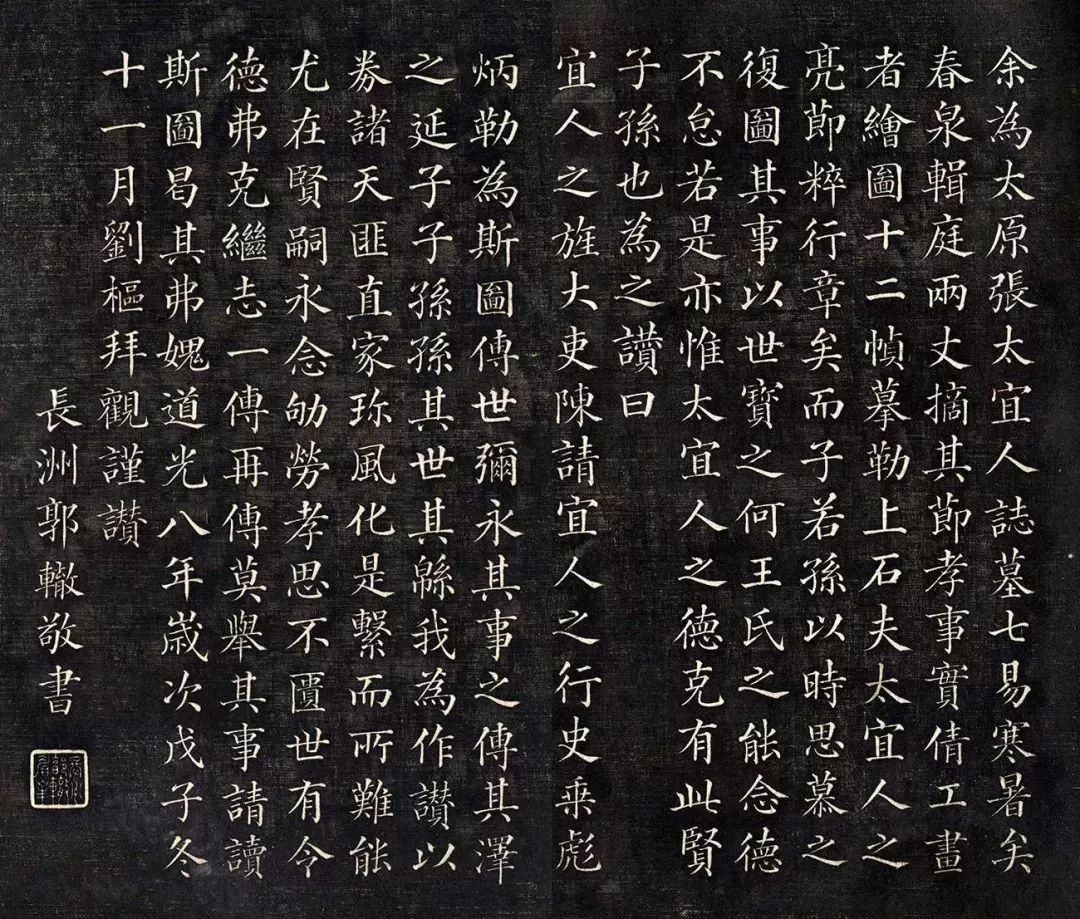 余為太原張太宜人誌墓七易寒暑矣
春泉輯庭兩丈摘其節孝事實倩工畫
者繪圖十二幀摹勒上石夫太宜人之
亮節粹行章矣而子若孫以時思慕之
復圖其事以世寶之何王氏之能念德
不怠若是亦惟太宜人之德克有此賢
子孫也為之讚曰
宜人之旌大吏陳請宜人之行史乘彪
炳勒為斯圖傳世彌永其事之傳其澤
之延子子孫孫其世其緜我為作讚以
券諸天匪直家珎風化是繫而所難能
尤在賢嗣永念劬勞孝思不匱世有令
德弗克繼志一傳再傳莫舉其事請讀
斯圖曷其弗媿道光八年歲次戊子冬
十一月劉樞拜觀謹讚
長洲郭轍敬書